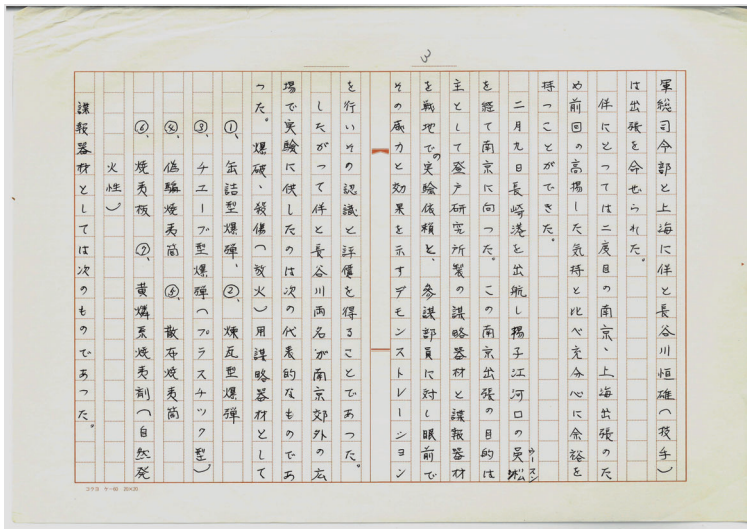 3
軍総司令部と上海に伴と長谷川恒雄(技手)
は出張を命ぜられた。
伴にとっては二度目の南京、上海出張のた
め前回の高揚した気持と比べ充分心に余裕を
持つことができた。
二月九日長崎港を出航し揚子江河口の呉淞
ウースン
を経て南京に向った。この南京出張の目的は
主として登戸研究所製の謀略器材と諜報器材
を戦地での実験依頼と、参謀部員に対し眼前で
その威力と効果を示すデモンストレーション
を行いその認識と評価を得ることであった。
したがって伴と長谷川両名が南京郊外の広
場で実験に供したのは次の代表的なものであ
った。爆破、殺傷(放火)用謀略器材として
①、缶詰型爆弾、②、煉瓦型爆弾
③、チューブ型爆弾(プラスチック型)
④、偽騙焼夷筒 ⑤、散布焼夷筒
⑥、焼夷板、⑦、黄燐系焼夷剤(自然発
火性)
諜報器材としては次のものであった。
コクヨ ケー60 20×20